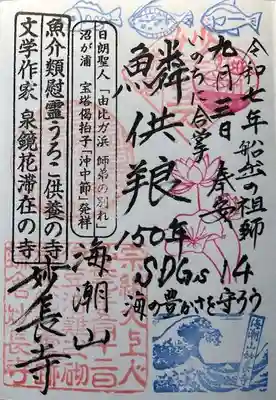 令和七年 船守の祖師
九月三日 奉安
いのちに合掌
鱗供養
150年
SDGs 14
海の豊かさを守ろう
日朗聖人「由比ガ浜 師弟の別れ」
沼が浦 宝塔偈拍子「沖中節」発祥
海潮山
妙長寺
魚介類慰霊うろこ供養の寺
文学作家 泉鏡花滞在の寺